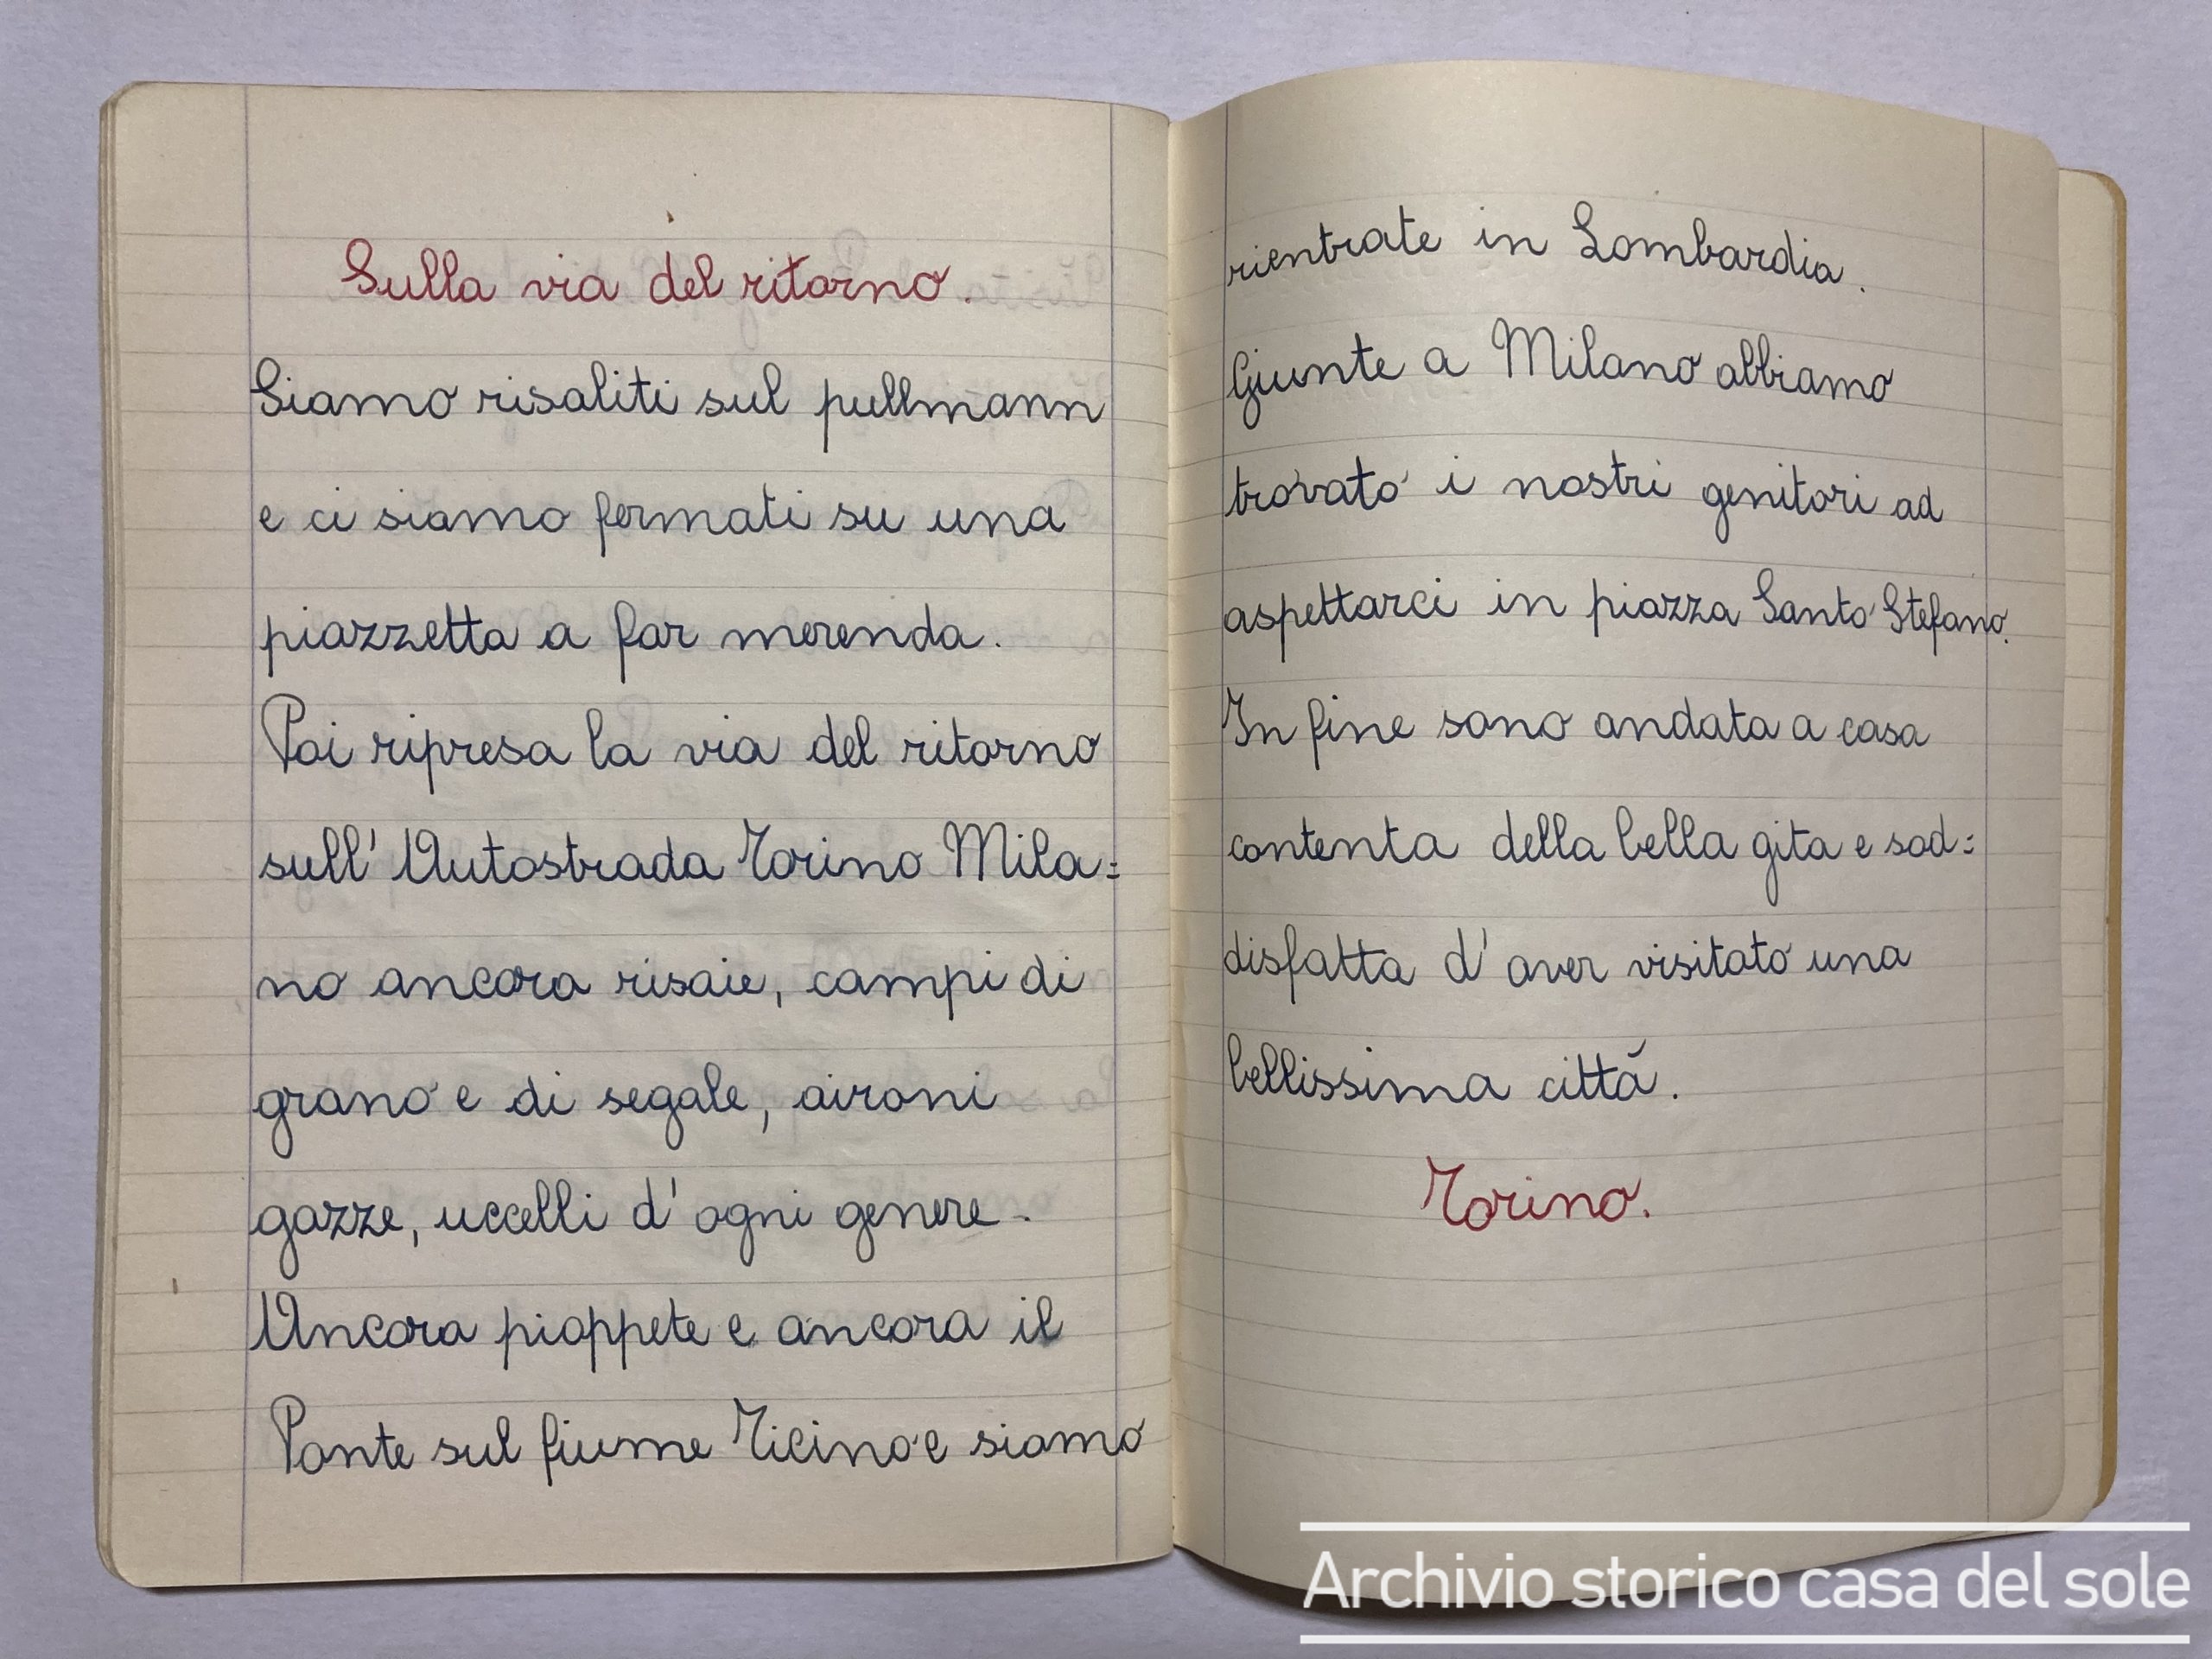 Sulla via del ritorno.
Siamo risaliti sul pullmann
e ci siamo fermati su una
piazzetta a far merenda.
Poi ripresa la via del ritorno
sull'Autostrada Torino Mila=
no ancora risaie, campi di
grano e di segale, aironi
gazze, uccelli d'ogni genere.
Ancora pioppete e ancora il
Ponte sul fiume Ticino e siamo
rientrate in Lombardia.
Giunte a Milano abbiamo
trovato i nostri genitori ad
aspettarci in piazza Santo Stefano.
In fine sono andata a casa
contenta della bella gita e sod=
disfatta d'aver visitato una
bellissima città.
Torino.
Archivio storico casa del sole